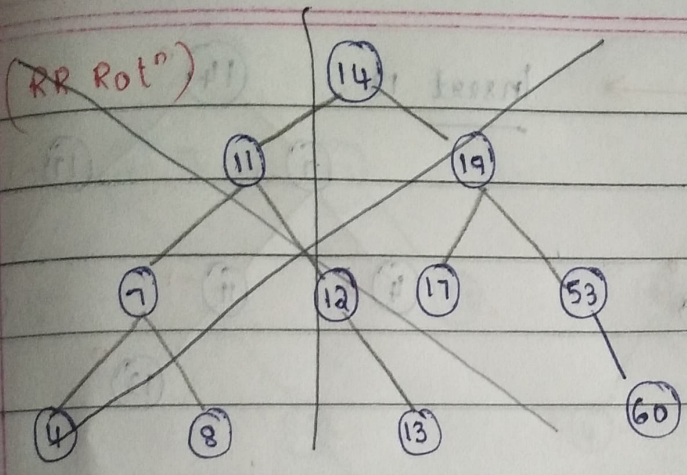 (RR Rotⁿ)
14
11 19
7 12 17 53
4 8 13 60